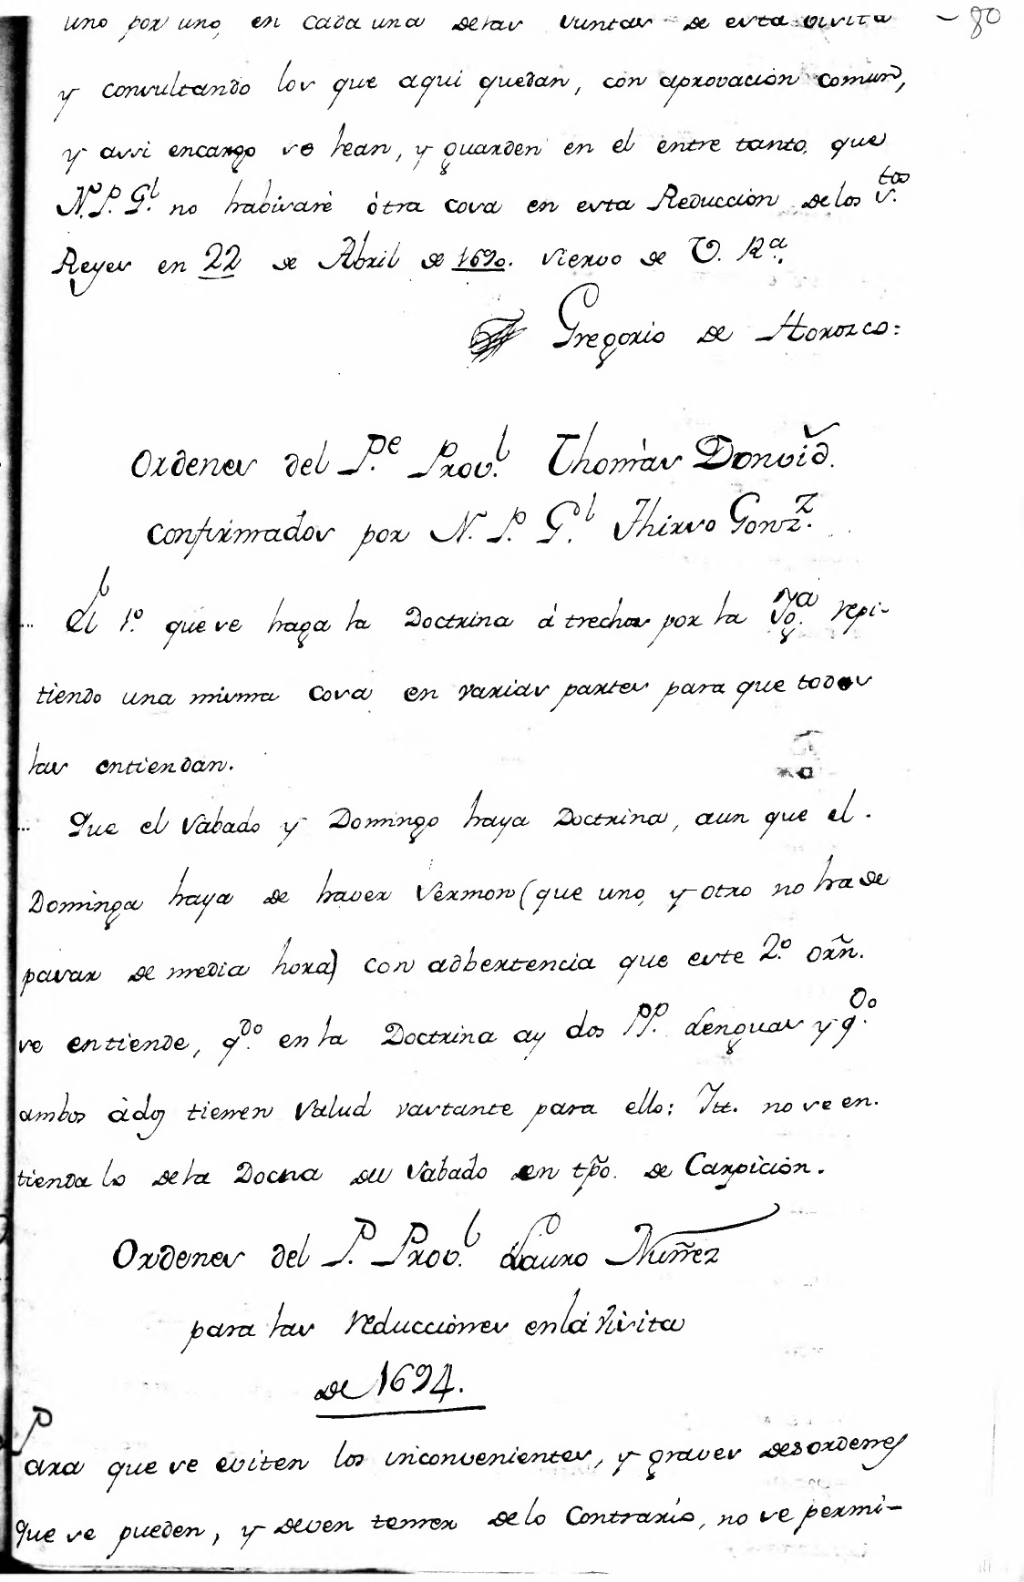 uno por uno, en cada una delas Juntas de esta visita - 80
y consultando los que aqui quedan, con aprovacion comun,
y assi encargo se lean, y guarden en el entre tanto, que
N. P. G.l no habisare òtra cosa en esta Reduccion de los S.tos
Reyes en 22 de Abril de 1690. siervo de V. R.a
Gregorio de Horozco:
Ordenes del P.e Prov.l Thomàs Donvid.
confirmados por N. P. G.l Thirso Gonz.z
El 1.º que se haga la Doctrina á trechos por la Yg.a repi-
tiendo una misma cosa en varias partes para que todos
las entiendan.
Que el Sabado y Domingo haya Doctrina, aun que el
Domingo haya de haver Sermon (que uno, y otro no ha de
pasar de media hora) con adbertencia que este 2.º orñ.
se entiende, q.do en la Doctrina ay dos PP. Lenguas y q.do
ambos àdos tienen Salud bastante para ello: Itt. no se en-
tienda lo dela Docna del Sabado en tpõ. de Carpiciòn.
Ordenes del P. Prov.l Lauro Nuñez
para las reducciones en la Visita
de 1694.
Para que se eviten los inconvenientes, y graves desordenes
que se pueden, y deven temer de lo Contrario, no se permi-